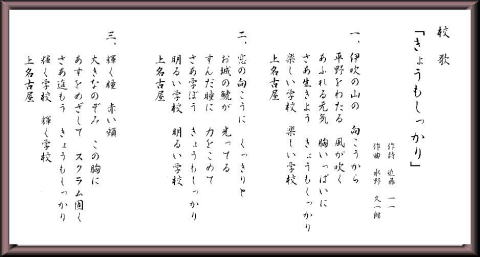 校歌
「きょうもしっかり」
作詩 近藤 一一
作曲 水野 久一郎
一、伊吹の山の 向こうから
平野をわたる 風が吹く
あふれる元気 胸いっぱいに
さあ生きよう きょうもしっかり
楽しい学校 楽しい学校
上名古屋
二、窓の向こうに くっきりと
お城の鯱が 光ってる
すんだ瞳に 力をこめて
さあ学ぼう きょうもしっかり
明るい学校 明るい学校
上名古屋
三、輝く瞳 赤い頬
大きなのぞみ この胸に
あすをめざして スクラム固く
さあ進もう きょうもしっかり
強く学校 輝く学校
上名古屋